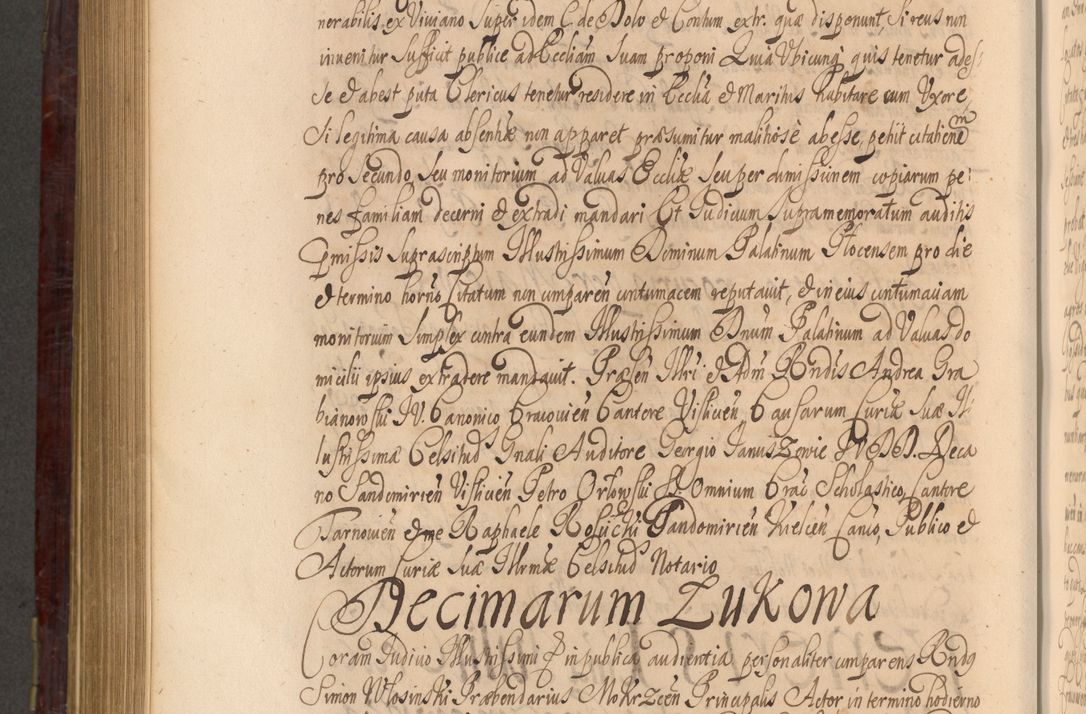 nerabilis ex Viviano Super idem C. de Dolo et Contum extr. quæ disponunt, Si reus non
invenitur Sufficit publice ad Eccliam Suam proponi Quia Ubicunq quis tenetur ades
Se et abest puta Clericus tenetur residere in Ecclia et Maritus habitare cum Uxore,
Si legitima causa absentiæ non apparet præsumitur malitiose abesse, petiit citationem
pro Secundo Seu monitorium ad Valvas Eccliæ Seu per dimissionem copiarum pe
nes familiam decerni et extradi mandari Et Judicium Supramemoratum auditis
Pmissis Suprascriptum Illustrissimum Dominum Palatinum Plocensem pro die
et termino horno Citatum non comparen contumacem reputavit, et in eius contumaciam
monitorium Simplex contra eundem Illustrissimum Dnum Palatinum ad Valvas do
micilii ipsius extradere mandavit. Præsen Illri et Adm Rndis Andrea Gra
bianowski JV. Canonico Cracovien Cantore Vislicien Causarum Curiæ Suæ Il
lustrissimæ Celsitud Gnali Auditore Georgio Januszewic JV DD. Deca
no Sandomirien Vislicien Petro Orlowski SS Omnium Crac Scholastico, Cantore
Tarnovien et me Raphaele Roluchi Sandomirien Kielcen Canco, Publico et
Actorum Curiæ Suæ Illrmæ Celsitud Notario
Decimarum Zukowa
Coram Judicio Illustrissimi & in publica audientia personaliter comparens Rndq
Simon Wlosinski Præbendarius Mokrzcen Principalis Actor in termino hodierno